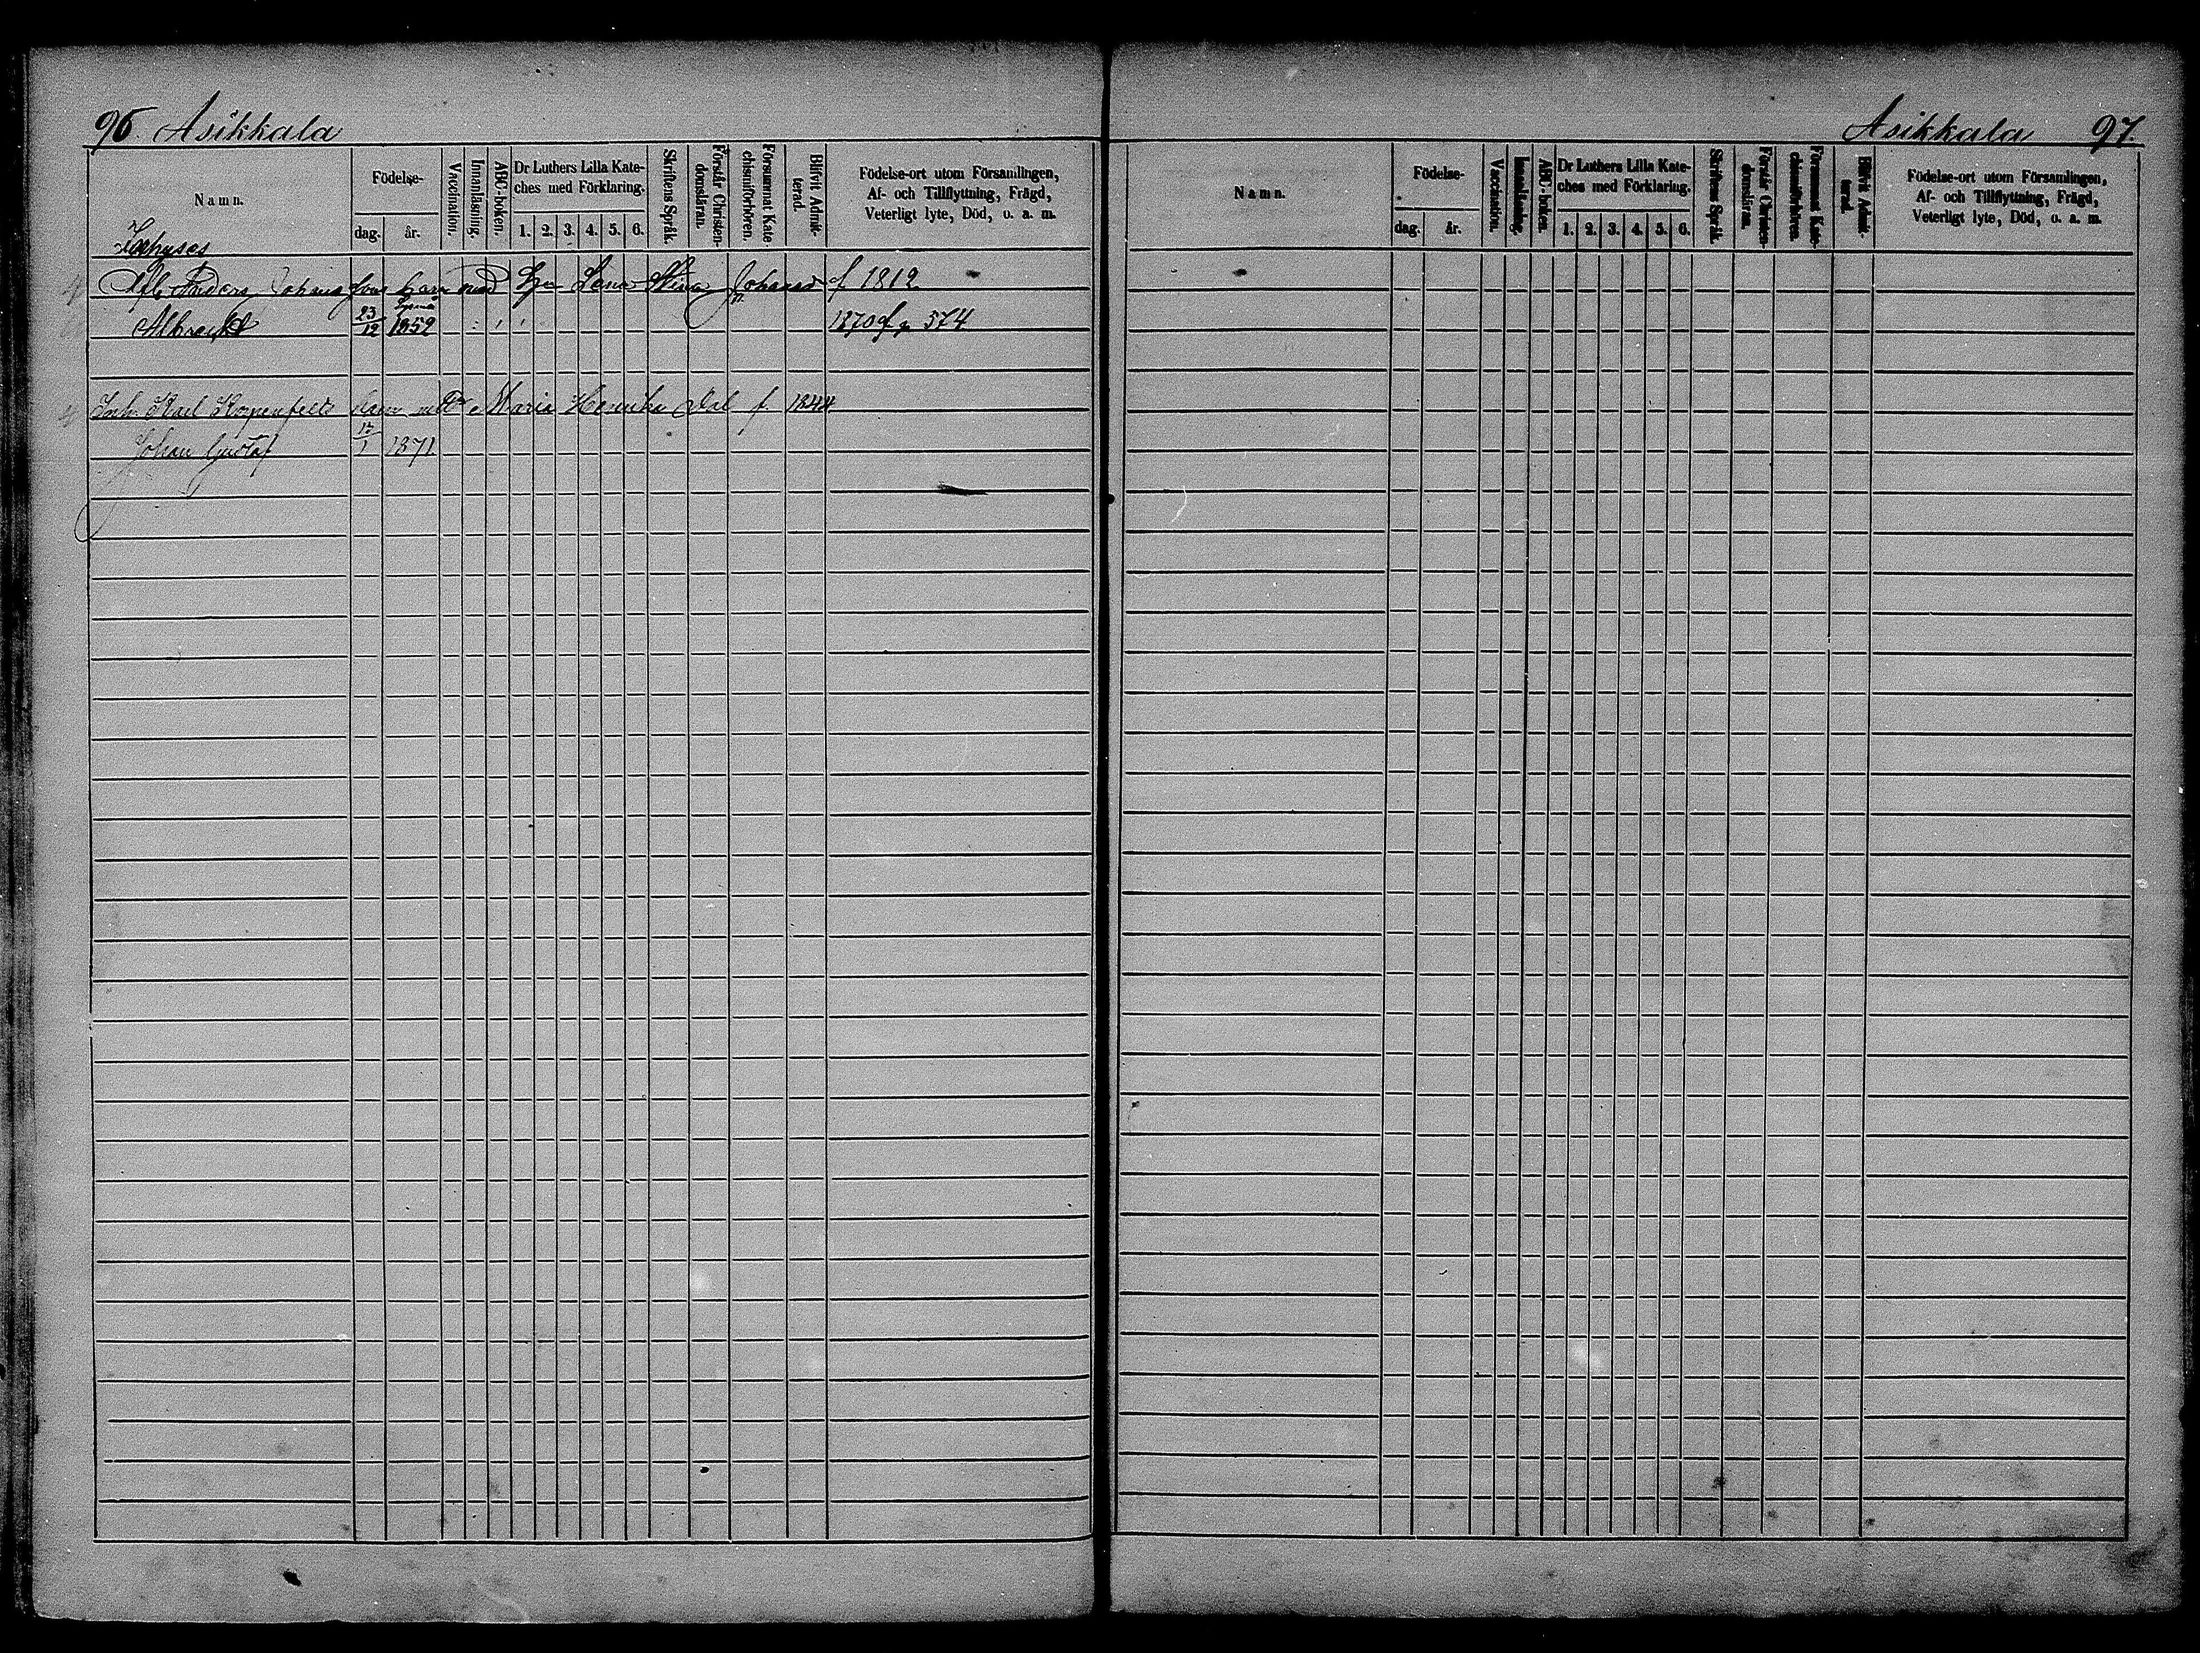 96 Asikkala
Namn.
Födelse-
dag.
år.
Vaccination.
Innanläsning.
ABC-boken.
Dr Luthers Lilla Kate-
ches med Förklaring.
1. 2. 3. 4. 5. 6.
Skriftens Språk.
Förstår Christen-
domsläran.
Försummat Kate
chismiförhören.
Blifvit Admit-
terad.
Födelse-ort utom Församlingen,
Af- och Tillflyttning, Frägd,
Veterligt lyte, Död, o. a. m.
Anders Johans Sons barn med Lena Stina f 1812
Albrecht 23/12 1852 1870 574
Inh. Karl Koppenfelts barn Maria Henrika f. 1844
Johan Gustaf 17/1 1871.
Asikkala 97.
Namn.
Födelse-
dag.
år.
Vaccination.
Innanläsning.
ABC-boken.
Dr Luthers Lilla Kate-
ches med Förklaring.
1. 2. 3. 4. 5. 6.
Skriftens Språk.
Förstår Christen-
domsläran.
Försummat Kate-
chismiförhören.
Blifvit Admit-
terad.
Födelse-ort utom Församlingen,
Af- och Tillflyttning, Frägd,
Veterligt lyte, Död, o. a. m.